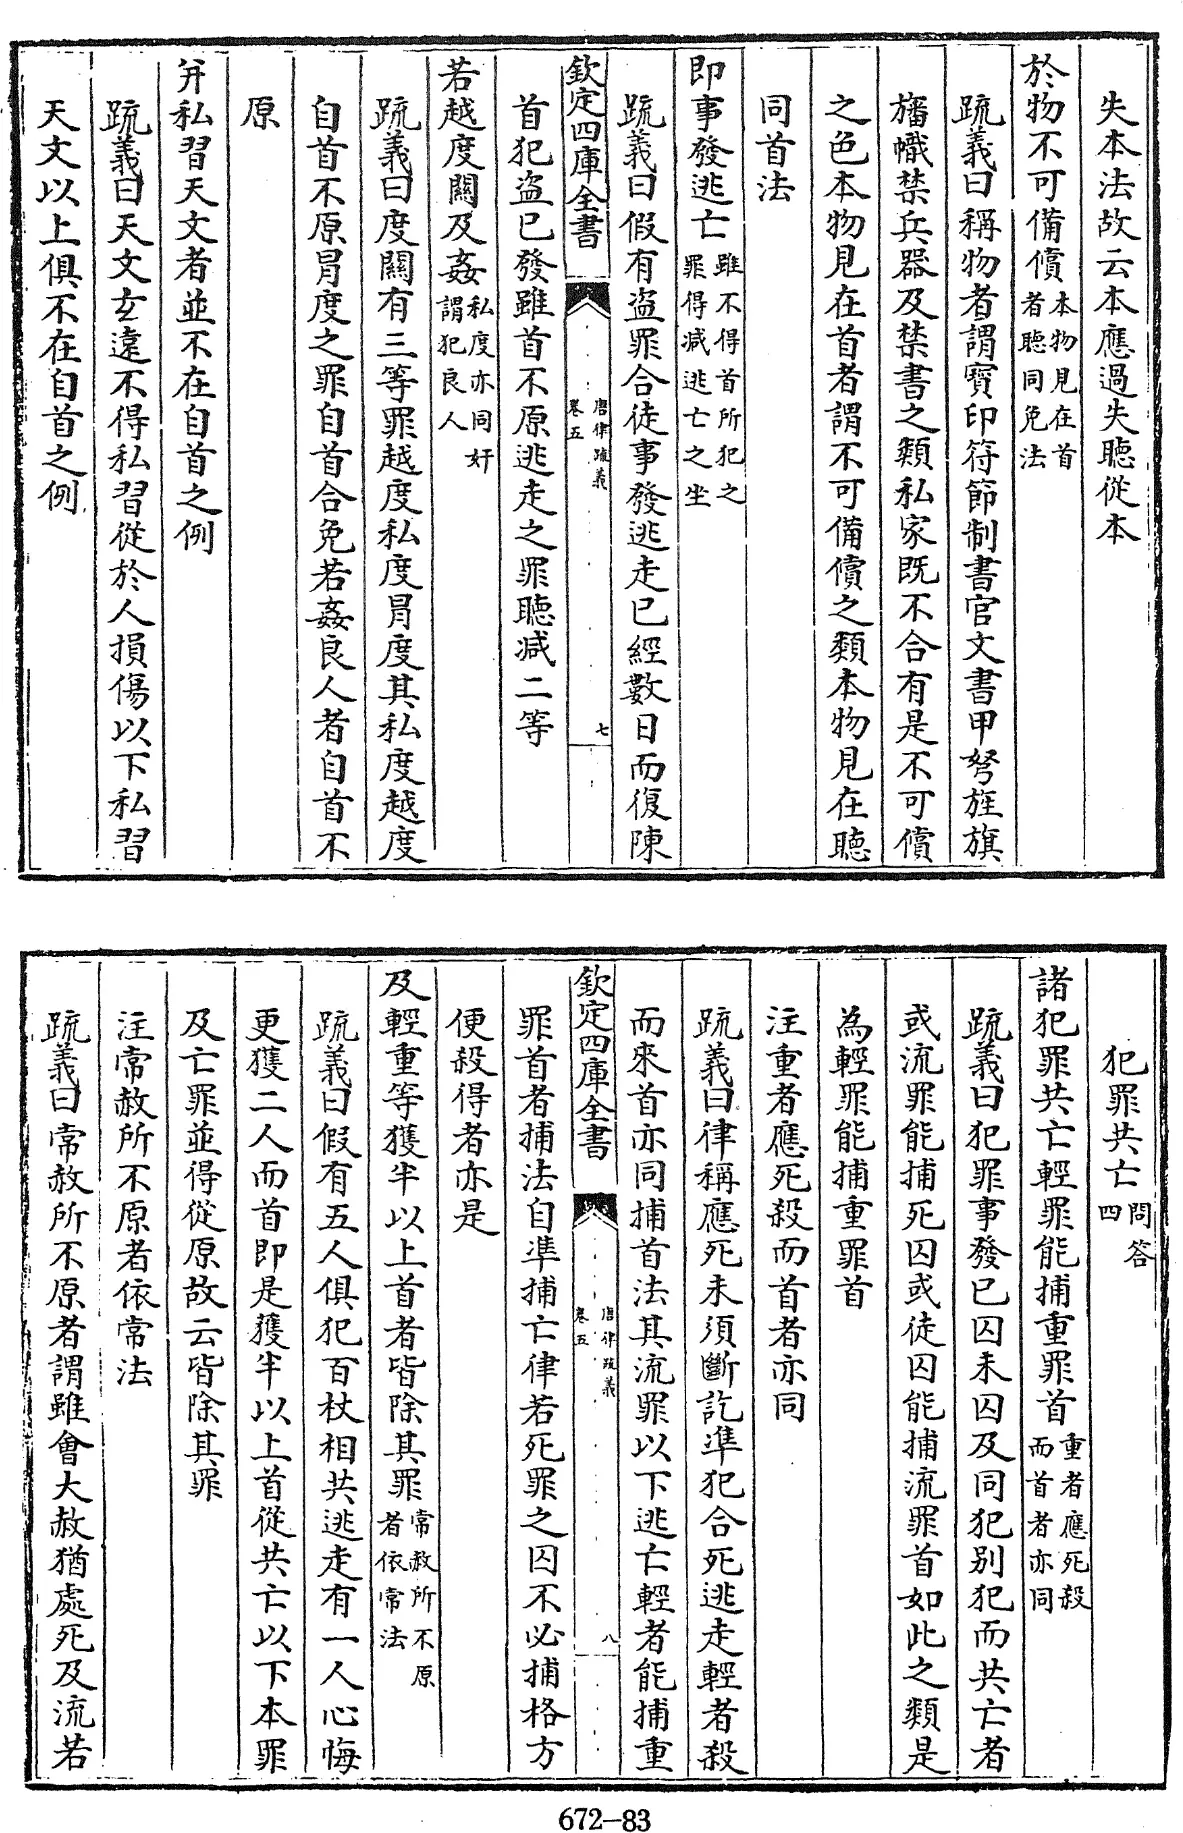 失本法故云本應過失聽從本
於物不可備償本物見在首者聽同免法
疏義曰稱物者謂寳印符節制書官文書甲弩旌旗
旛幟禁兵器及禁書之類私家既不合有是不可償
之色本物見在首者謂不可備償之類本物見在聽
同首法
即事發逃亡雖不得首所犯之罪得減逃亡之坐
疏義曰假有盜罪合徒事發逃走已經數日而復陳
欽定四庫全書
唐律疏義
卷五
七
首犯盜已發雖首不原逃走之罪聽減二等
若越度關及姦私度亦同奸謂犯良人
疏義曰度關有三等罪越度私度冒度其私度越度
自首不原冒度之罪自首合免若姦良人者自首不
原
并私習天文者並不在自首之例
疏義曰天文𤣥遠不得私習從於人損傷以下私習
天文以上俱不在自首之例
犯罪共亡問答四
諸犯罪共亡輕罪能捕重罪首重者應死殺而首者亦同
疏義曰犯罪事發已囚未囚及同犯别犯而共亡者
或流罪能捕死囚或徒囚能捕流罪首如此之類是
為輕罪能捕重罪首
注重者應死殺而首者亦同
疏義曰律稱應死未須斷訖準犯合死逃走輕者殺
而來首亦同捕首法其流罪以下逃亡輕者能捕重
欽定四庫全書
唐律疏義
卷五
八
罪首者捕法自準捕亡律若死罪之囚不必捕格方
便殺得者亦是
及輕重等獲半以上首者皆除其罪常赦所不原者依常法
疏義曰假有五人俱犯百杖相共逃走有一人心悔
更獲二人而首即是獲半以上首從共亡以下本罪
及亡罪並得從原故云皆除其罪
注常赦所不原者依常法
疏義曰常赦所不原者謂雖會大赦猶處死及流若
672-83